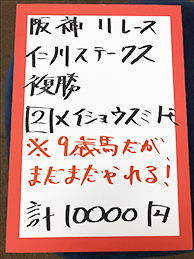 阪神11レース
仁川ステークス
複勝
2メイショウスミトモ
※9歳馬だが、
まだまだやれる!
計10000円